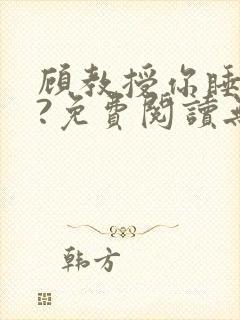 顾教授你睡
?免費閱讀
韩方